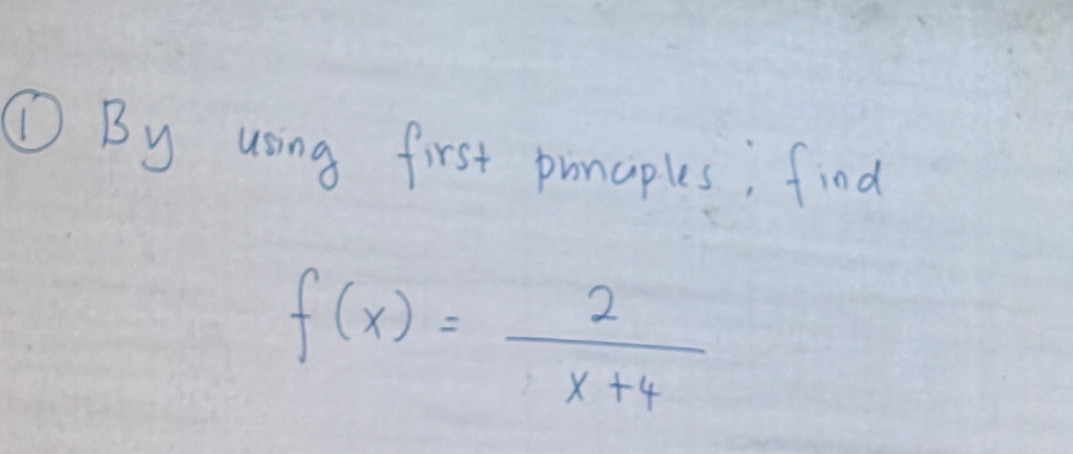 ① By using first principles; find
f(x) = 2 / x + 4